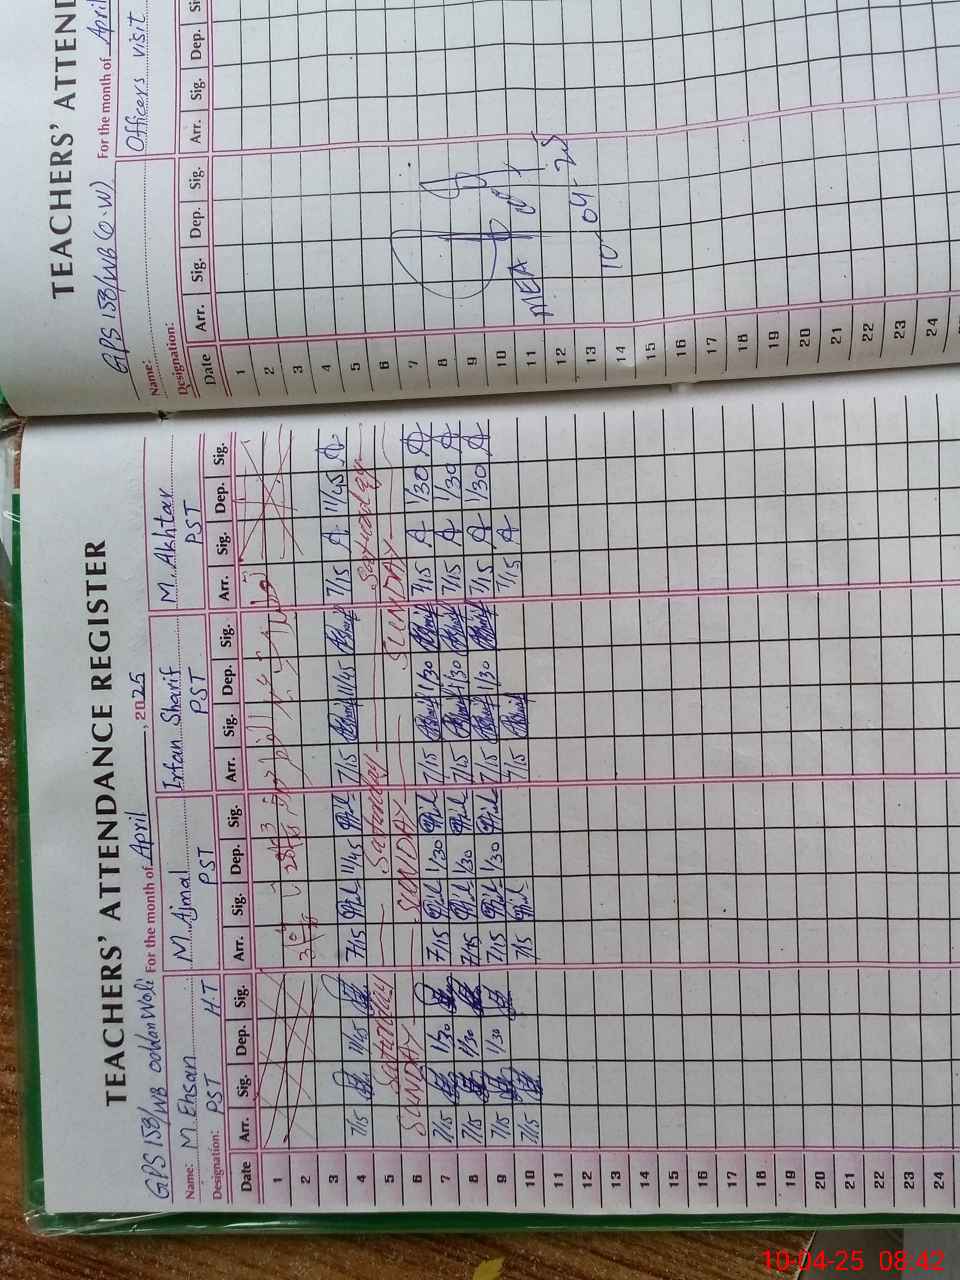 TEACHERS' ATTENDANCE REGISTER
GPS 158/WB For the month of April, 2025
Name: M. Ehsan M. Ajmal Irfan Sharif M. Akhtar
Designation: PST H.T PST PST PST
Date Arr. Sig. Dep. Sig. Arr. Sig. Dep. Sig. Arr. Sig. Dep. Sig. Arr. Sig. Dep. Sig.
1
2
3
4 7/15 11/45 7/15 11/45 7/15 11/45 7/15 11/45
5 Saturday Saturday Saturday
6 SUNDAY SUNDAY SUNDAY
7 7/15 1/30 7/15 1/30 7/15 1/30 7/15 1/30
8 7/15 1/30 7/15 1/30 7/15 1/30 7/15 1/30
9 7/15 1/30 7/15 1/30 7/15 1/30 7/15 1/30
10 7/15 7/15 7/15 7/15
11
12
13
14
15
16
17
18
19
20
21
22
23
24
TEACHERS' ATTEND
GPS 158/WB (O.W) For the month of April
Name: Officers visit
Designation:
Date Arr. Sig. Dep. Sig. Arr. Sig. Dep.
1
2
3
4
5
6
7
8
9
10
11
12
13
14
15
16
17
18
19
20
21
22
23
24
MEA
10-04-25
10-04-25 08:42